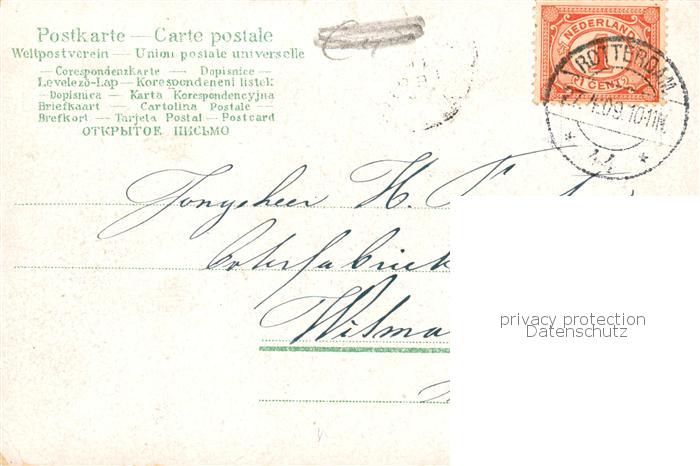 Postkarte — Carte postale
Weltpostverein — Union postale universelle
— Corespondenzkarte — Dopisnice —
Levelező-Lap — Korespondeneni listek
— Dopisnica — Karta Korespondencyjna
Briefkaart — Cartolina Postale —
Brefkort — Tarjeta Postal — Postcard
ОТКРЫТОЕ ПИСЬМО
NEDERLAND
1
1 CENT
ROTTERDAM
4.09. 10-11N.
* *
Jongeheer H.
Wilma
privacy protection
Datenschutz